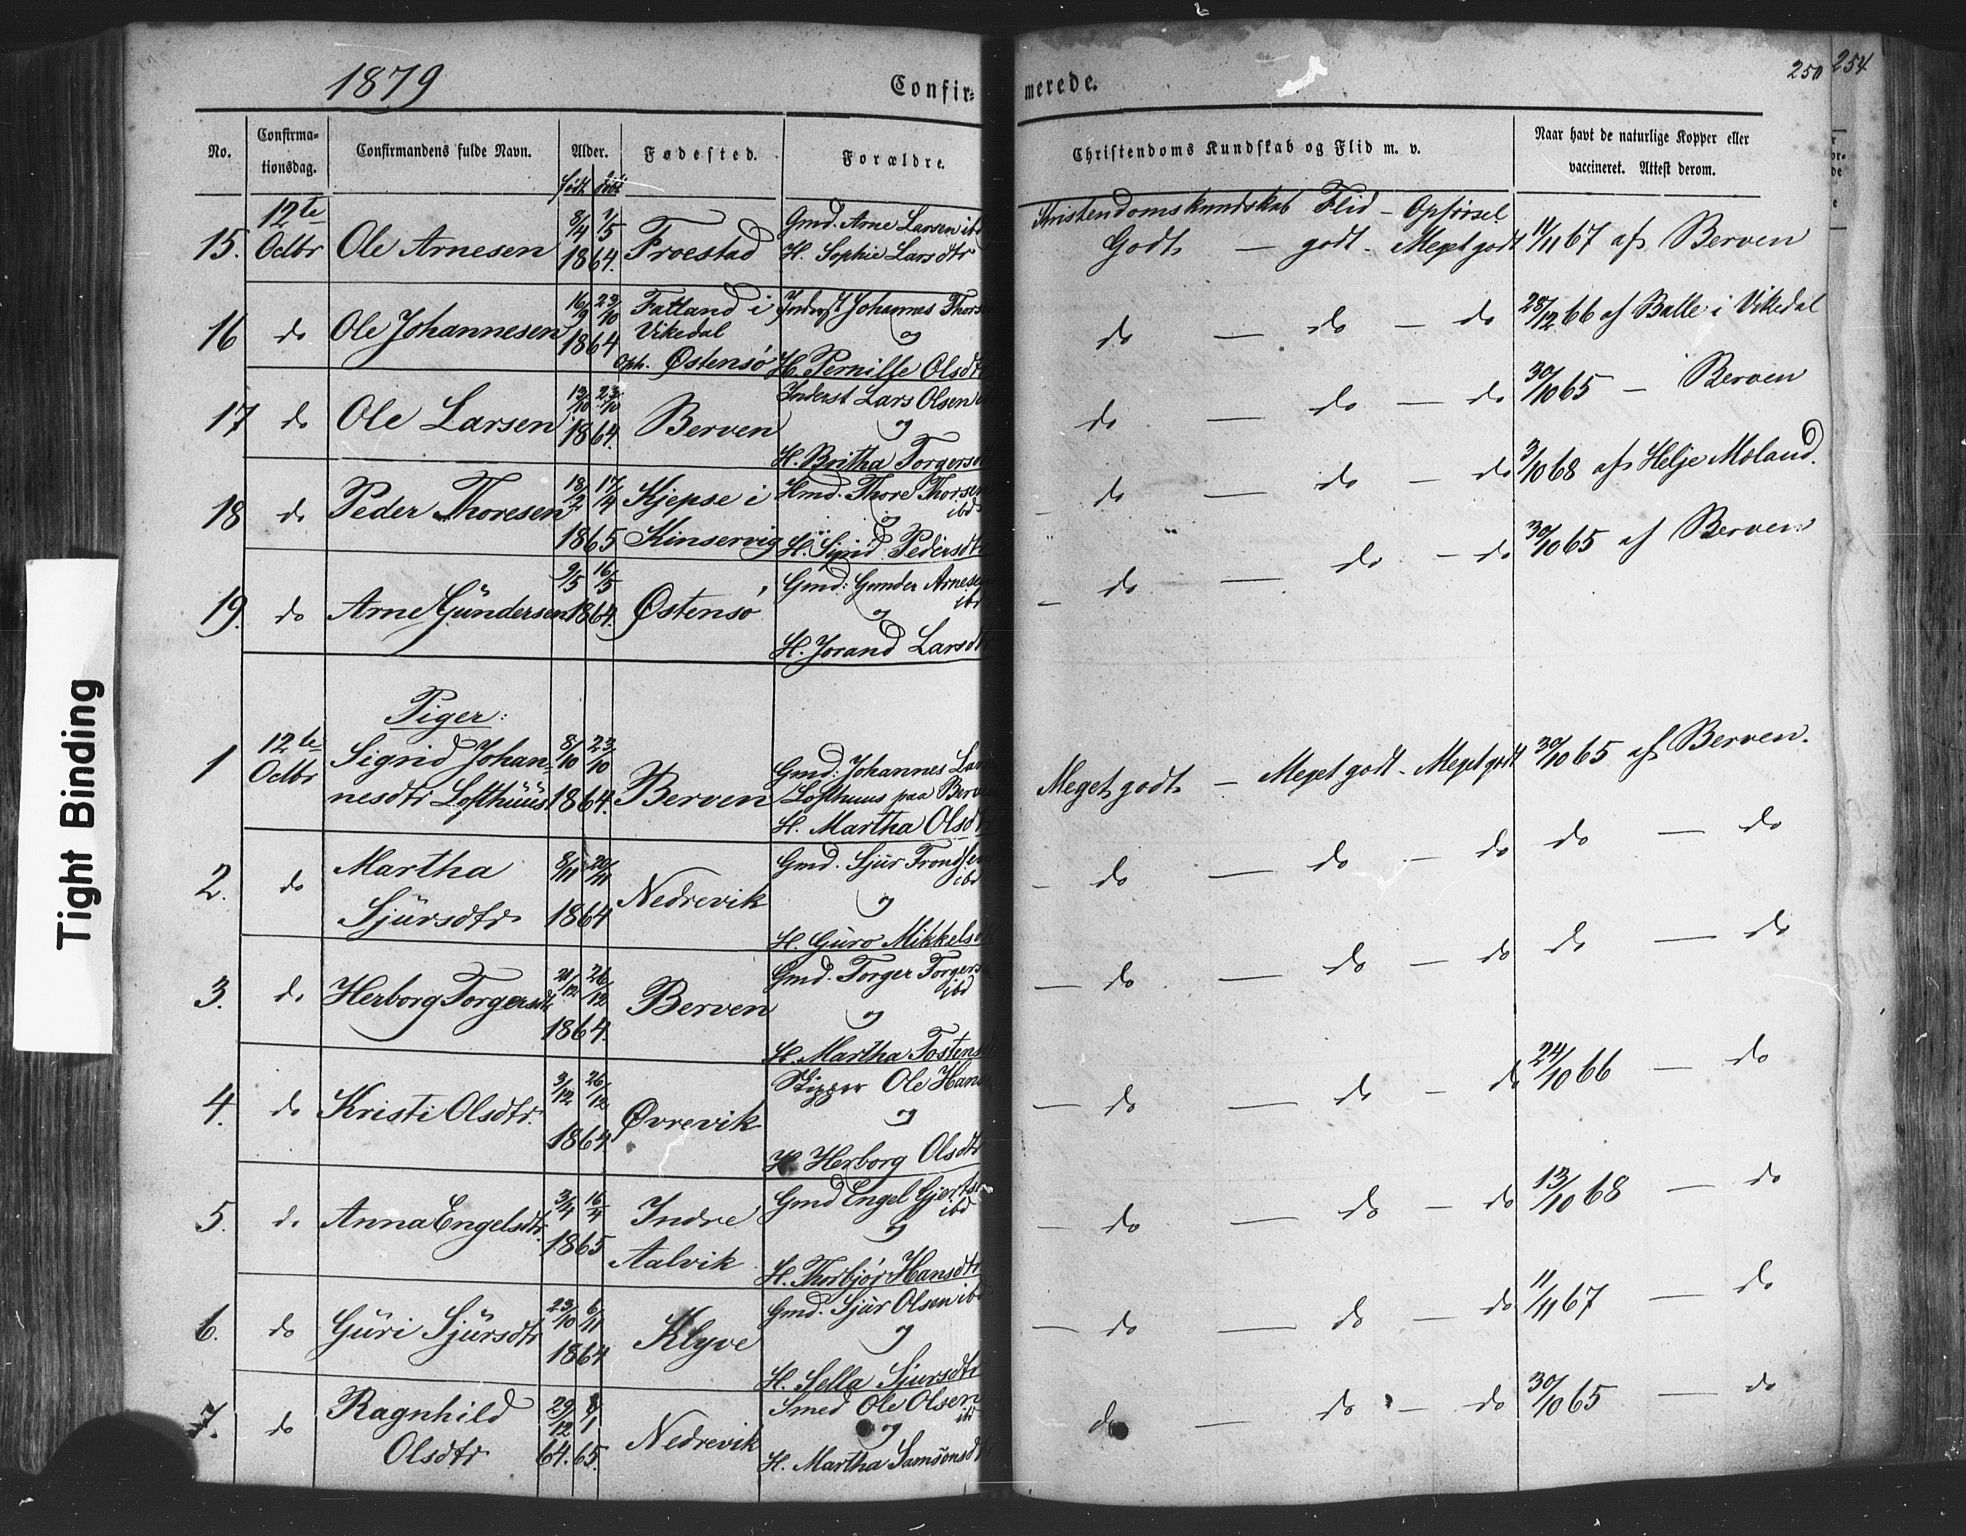 1879
Confir-
merede.
250
254
No.
Confirma-
tionsdag.
Confirmandens fulde Navn.
Alder.
Fødested.
Forældre.
Christendoms Kundskab og Flid m. v.
Naar havt de naturlige Kopper eller
vaccineret. Attest derom.
født døbt
Kristendomskundskab Flid - Opførsel
15. 12te Octbr Ole Arnesen 8/4 1/5 1864. Froestad Gmd. Arne Larsen ibd H. Sophie Larsdtr Godt — godt - Meget godt 11/11 67 af Berven
16 do Ole Johannesen 16/9 23/10 1864 Fatland i Vikedal Oph. Østensø Inderst Johannes Thors og H. Pernille Olsdtr do — do — do 28/12 66 af Balle i Vikedal
17 do Ole Larsen 13/10 23/10 1864. Berven Inderst Lars Olsen og H. Britha Torgers do — do — do 30/10 65 — Berven
18 do Peder Thoresen 18/2 17/4 1865 Kjepse i Kinservig Hmd. Thore Thorsen ibd og H. Sigrid Pedersdtr do — do — do 3/10 68 af Helje Moland.
19. do Arne Gundersen 9/5 16/5 1864. Østensø Gmd: Gunder Arnesen ibd. og H. Jorand Larsdtr do — do — do 30/10 65 af Berven
Piger:
1 12te Octbr Sigrid Johan- nesdtr Lofthuus 8/10 23/10 1864. Berven Gmd: Johannes Lar Lofthuus paa Berv H. Martha Olsdt Meget godt — Meget godt - Meget godt 30/10 65 af Berven.
2. do Martha Sjursdtr 8/11 20/11 1864 Nedrevik Gmd. Sjur Trondsen ibd og H. Guro Mikkelsd do — do — do do — do
3. do Herborg Torgersdt 21/12 26/12 1864. Berven Gmd. Torger Torgers ibd og H. Martha Tostens do — do — do do — do
4. do Kristi Olsdtr. 3/12 26/12 1864 Øvrevik Skipper Ole Hans og H. Herborg Olsdtr do — do — do 24/10 66 — do
5. do Anna Engelsdtr. 3/4 16/4 1865 Indre Aalvik Gmd Engel Gjerts ibd og H. Thorbjør Hansdtr do — do — do 13/10 68 — do
6. do Guri Sjursdtr 23/10 6/11 1864 Klyve Gmd. Sjur Olsen ibd og H. Sella Sjursdtr do — do — do 11/11 67 — do
7. do Ragnhild Olsdtr 29/12 8/1 64. 65. Nedrevik Smed Ole Olsen ibd og H. Martha Samsonsdt do — do — do 30/10 65 — do
Tight Binding